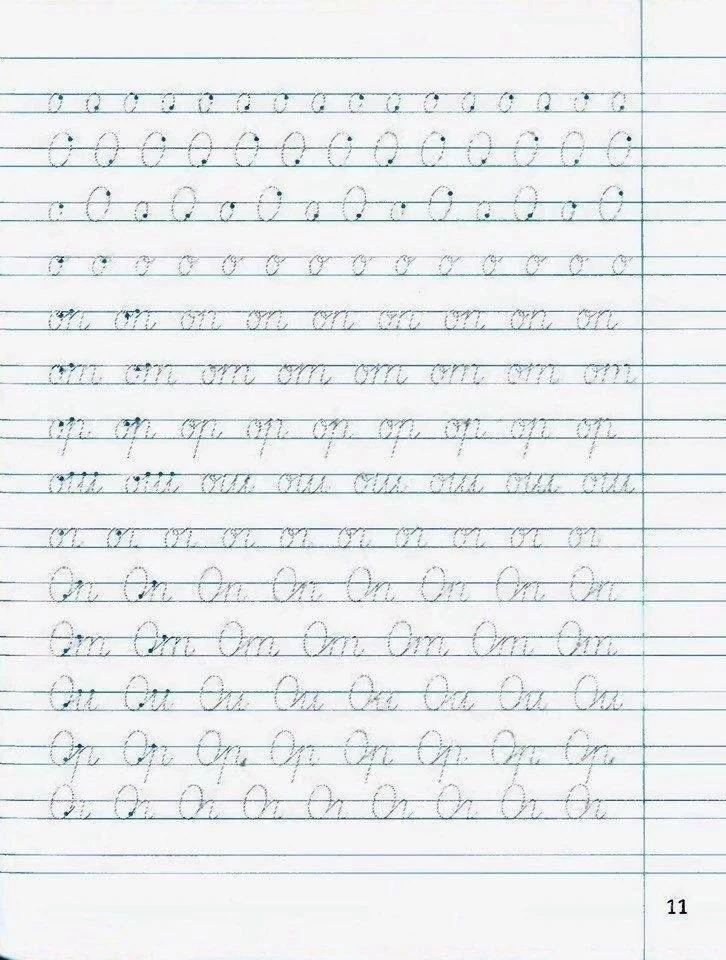 о о о о о о о о о о о о о о о о
О О О О О О О О О О О О О
о О о О о О о О о О о О о О
о о о о о о о о о о о о о о
оп оп оп оп оп оп оп оп оп
от от от от от от от от
ор ор ор ор ор ор ор ор ор
ош ош ош ош ош ош ош ош
ог ог ог ог ог ог ог ог ог ог
Оп Оп Оп Оп Оп Оп Оп Оп
От От От От От От От
Ои Ои Ои Ои Ои Ои Ои Ои
Ор Ор Ор Ор Ор Ор Ор Ор
Ог Ог Ог Ог Ог Ог Ог Ог Ог
11